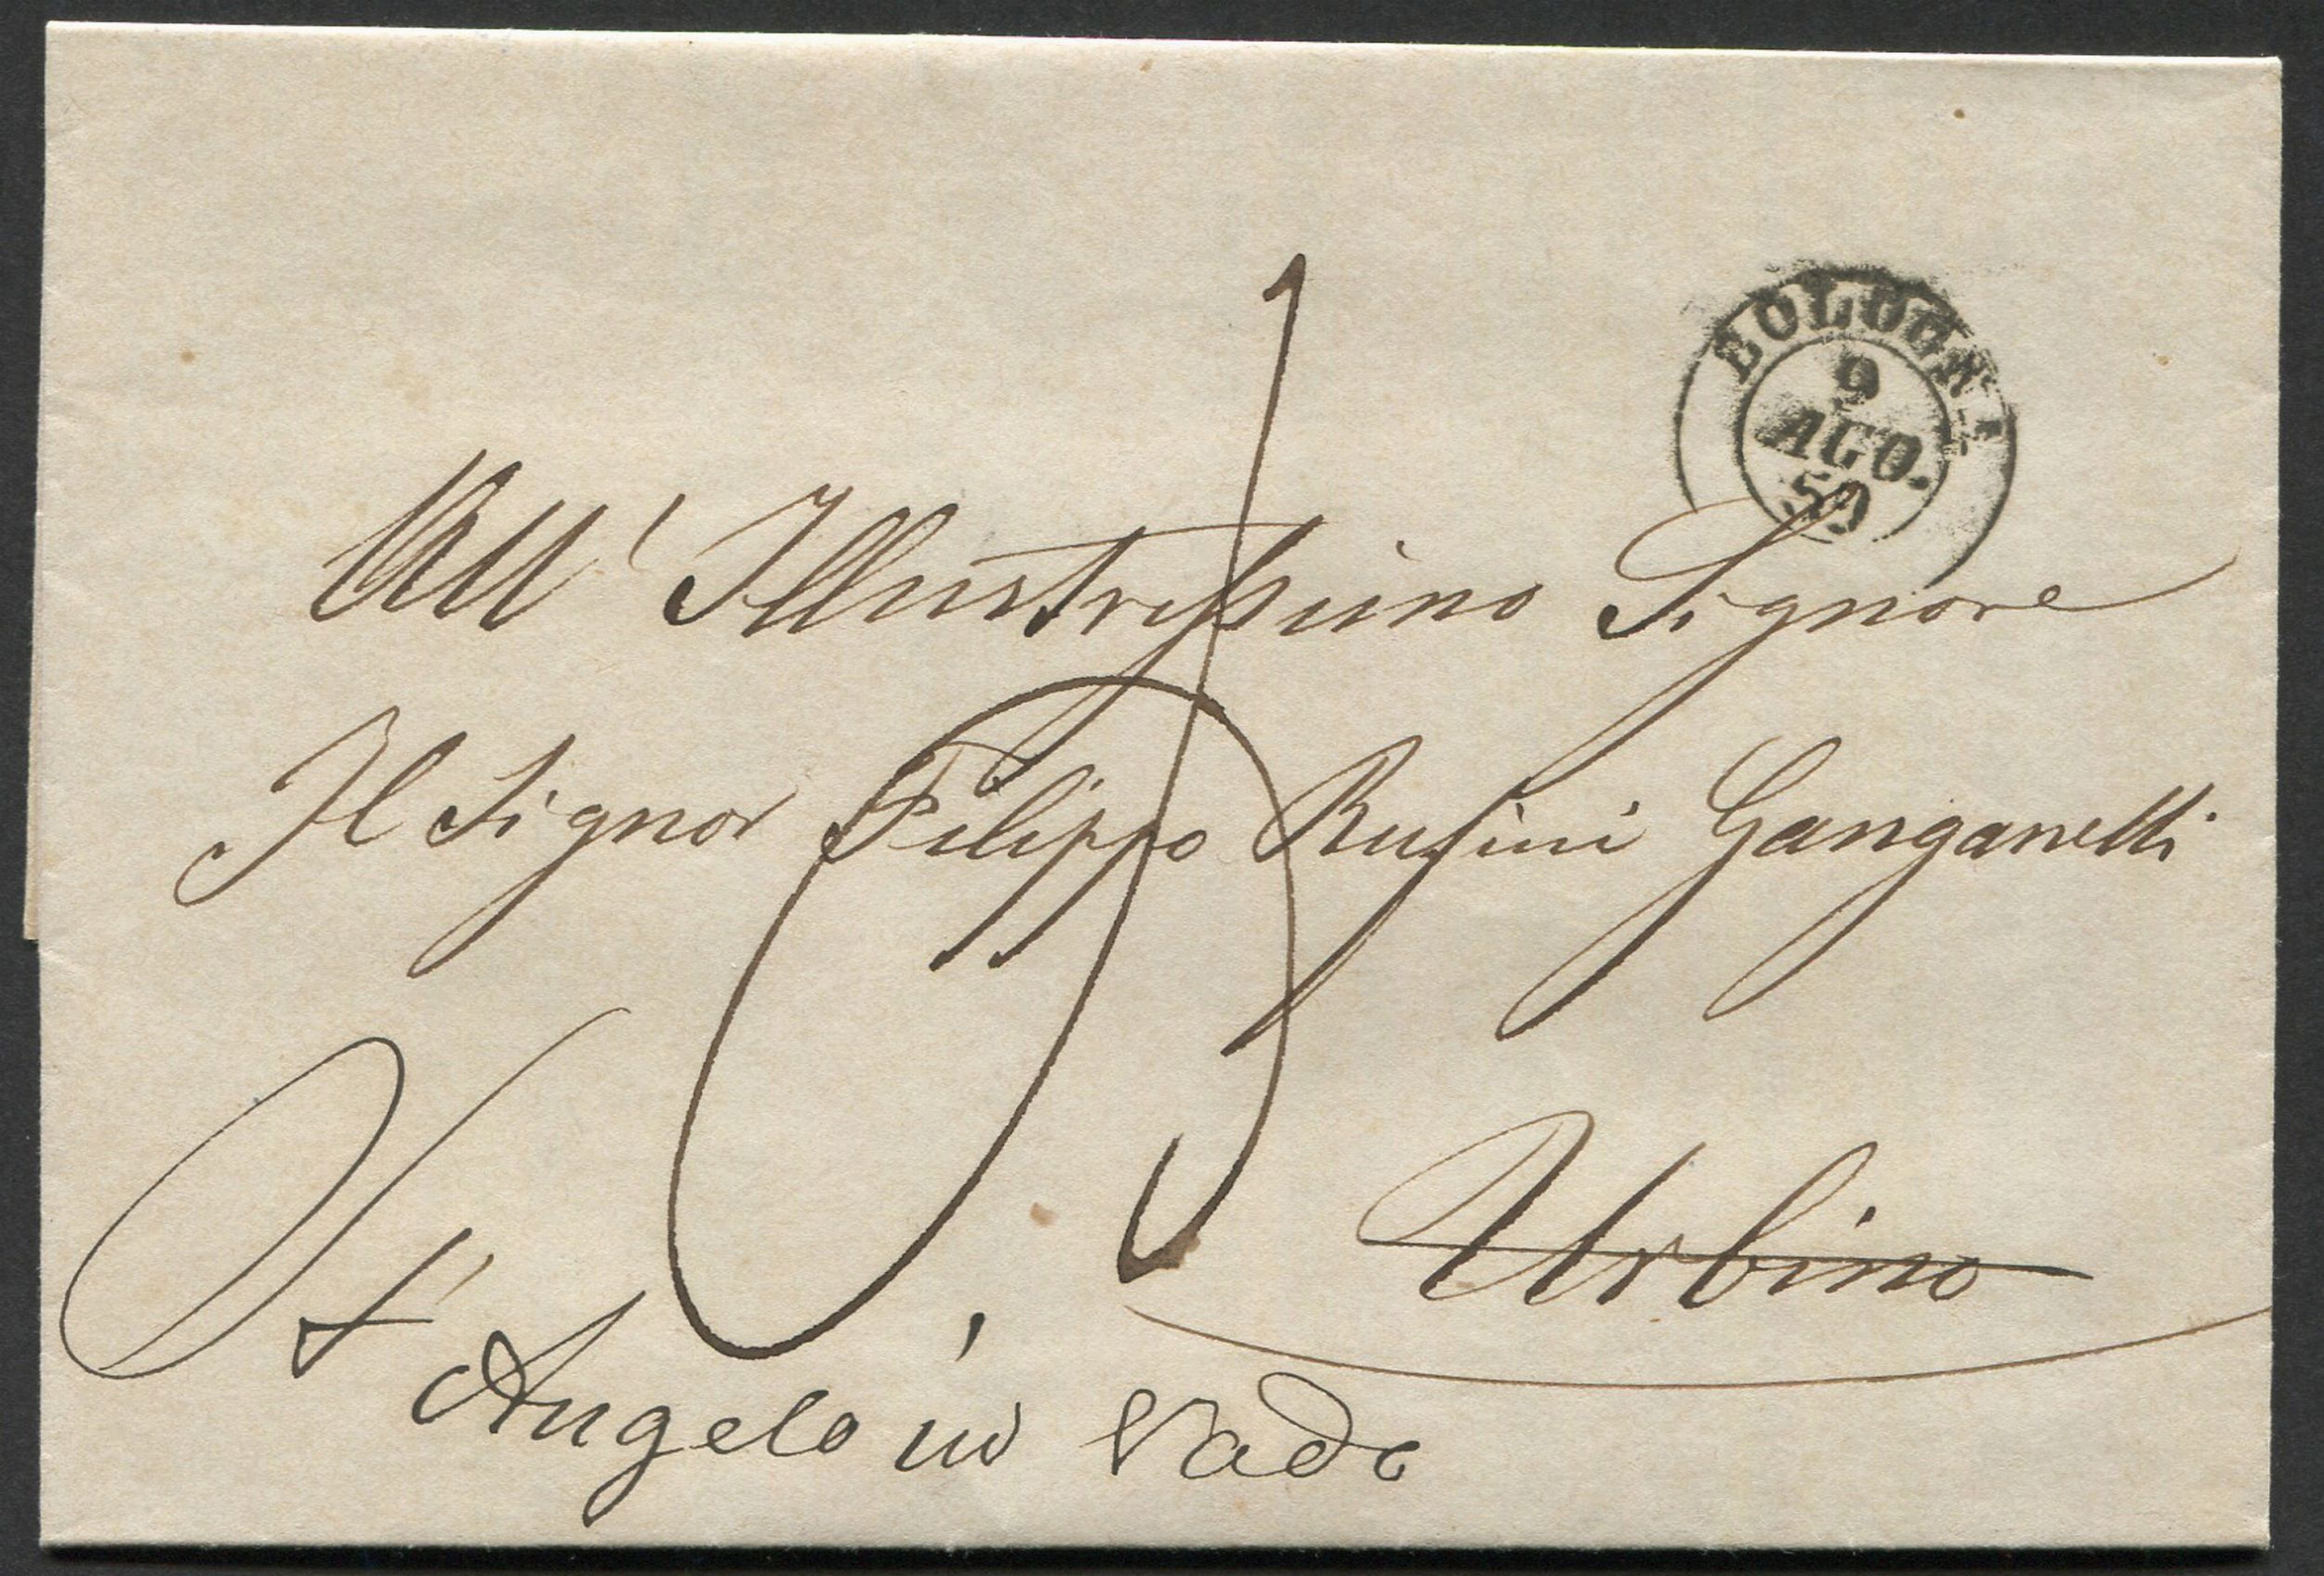 BOLOGNA
9
AGO.
59
All' Illustrissimo Signore
Il Signor Filippo Rufini Ganganelli
Urbino
St Angelo in Vado